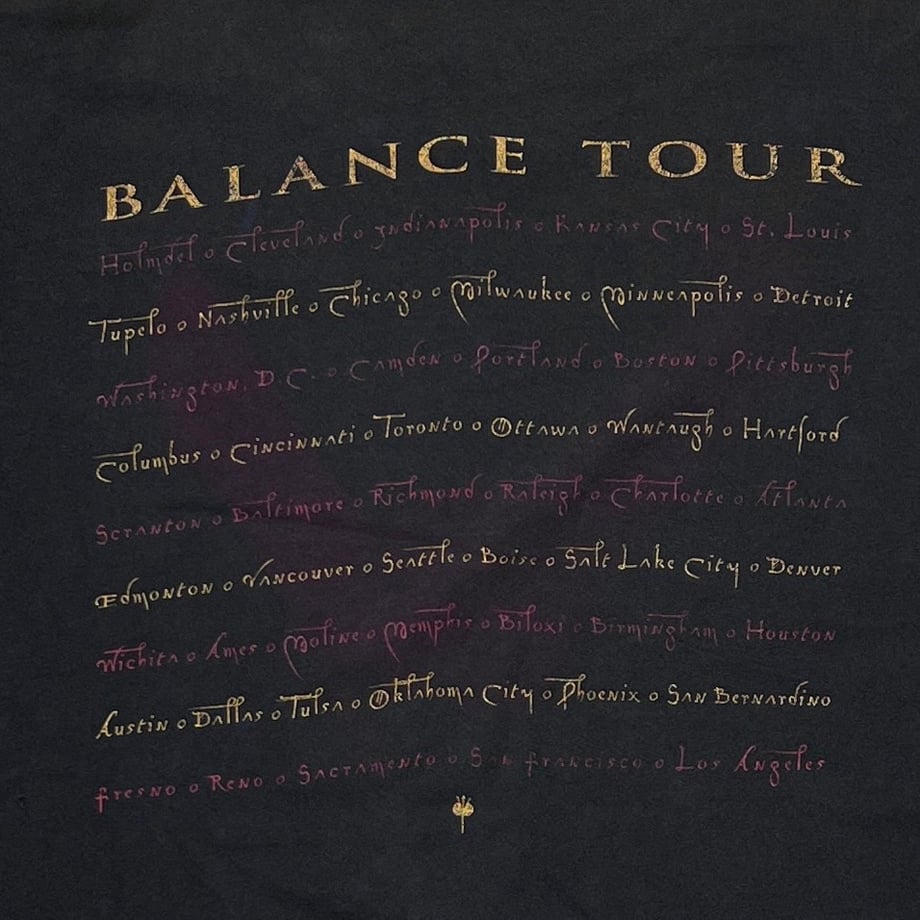 BALANCE TOUR
Holmdel o Cleveland o Indianapolis o Kansas City o St. Louis
Tupelo o Nashville o Chicago o Milwaukee o Minneapolis o Detroit
Washington, D.C. o Camden o Portland o Boston o Pittsburgh
Columbus o Cincinnati o Toronto o Ottawa o Wantaugh o Hartford
Scranton o Baltimore o Richmond o Raleigh o Charlotte o Atlanta
Edmonton o Vancouver o Seattle o Boise o Salt Lake City o Denver
Wichita o Ames o Moline o Memphis o Biloxi o Birmingham o Houston
Austin o Dallas o Tulsa o Oklahoma City o Phoenix o San Bernardino
Fresno o Reno o Sacramento o San Francisco o Los Angeles